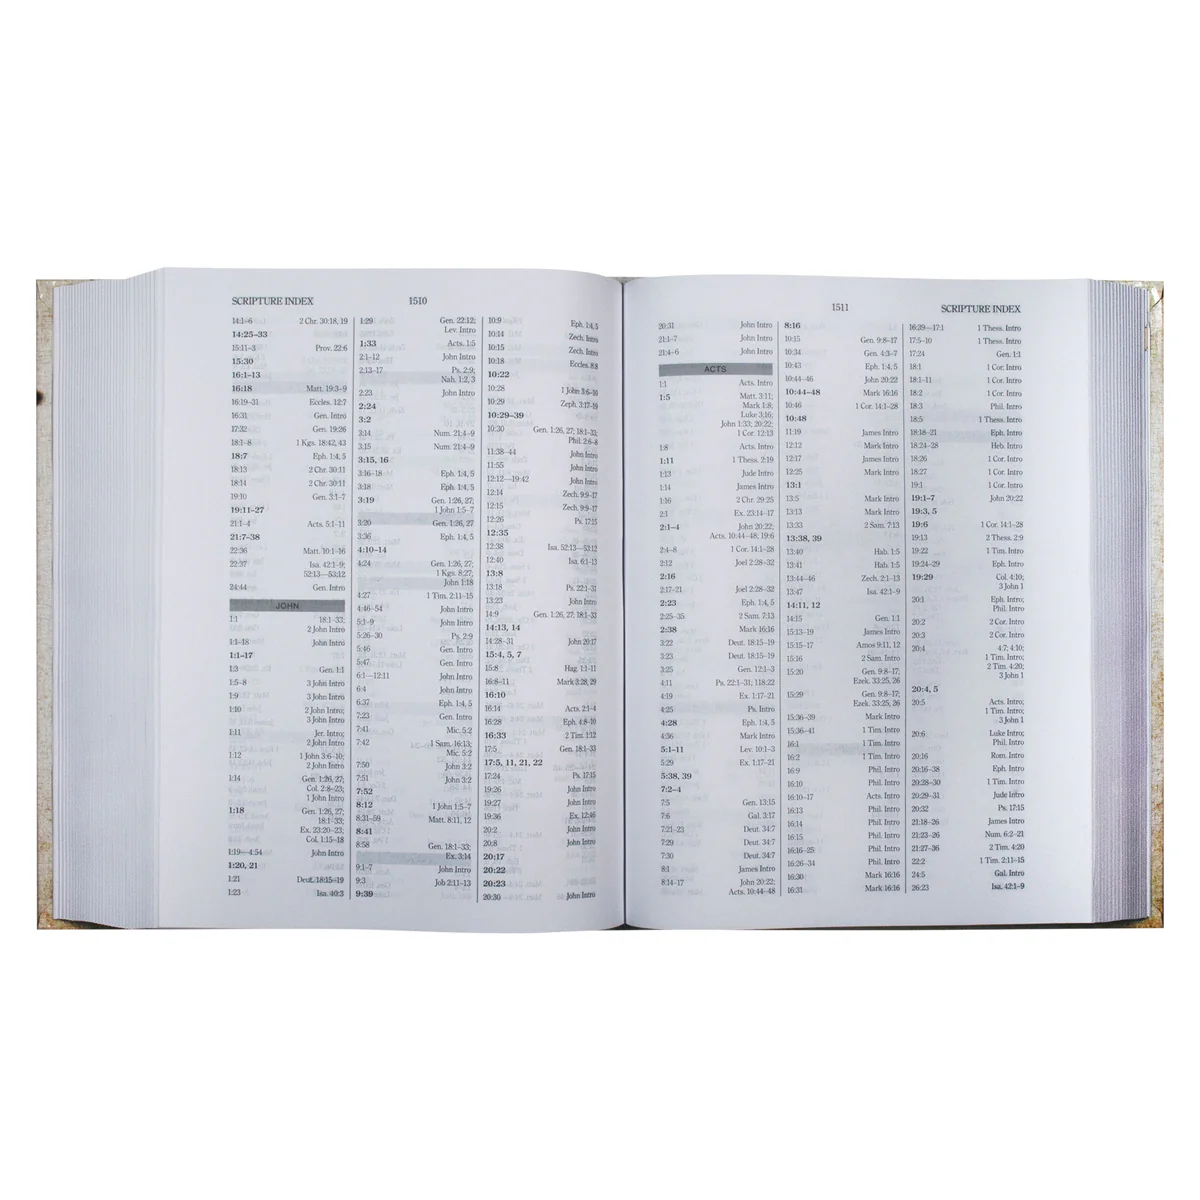 SCRIPTURE INDEX 1510
14:1–6 2 Chr. 30:18, 19
14:25–33
15:11–3 Prov. 22:6
15:30
16:1–13
16:18 Matt. 19:3–9
16:19–31 Eccles. 12:7
16:31 Gen. Intro
17:32 Gen. 19:26
18:1–8 1 Kgs. 18:42, 43
18:7 Eph. 1:4, 5
18:13 2 Chr. 30:11
18:14 2 Chr. 30:11
19:10 Gen. 3:1–7
19:11–27
21:1–4 Acts. 5:1–11
21:7–38
22:36 Matt. 10:1–16
22:37 Isa. 42:1–9;
52:13—53:12
24:44 Gen. Intro
JOHN
1:1 18:1–33;
2 John Intro
1:1–18 John Intro
1:1–17
1:3 Gen. 1:1
1:5–8 3 John Intro
1:9 3 John Intro
1:10 2 John Intro;
3 John Intro
1:11 Jer. Intro;
2 John Intro
1:12 1 John 3:6–10;
2 John Intro
1:14 Gen. 1:26, 27;
Col. 2:8–23;
1 John Intro
1:18 Gen. 1:26, 27;
18:1–33;
Ex. 23:20–23;
Col. 1:15–18
1:19—4:54 John Intro
1:20, 21
1:21 Deut. 18:15–19
1:23 Isa. 40:3
1:29 Gen. 22:12;
Lev. Intro
1:33 Acts. 1:5
2:1–12 John Intro
2:13–17 Ps. 2:9;
Nah. 1:2, 3
2:23 John Intro
2:24
3:2
3:14 Num. 21:4–9
3:15 Num. 21:4–9
3:15, 16
3:16–18 Eph. 1:4, 5
3:18 Eph. 1:4, 5
3:19 Gen. 1:26, 27;
1 John 1:5–7
3:20 Gen. 1:26, 27
3:36 Eph. 1:4, 5
4:10–14
4:24 Gen. 1:26, 27;
1 Kgs. 8:27;
John 1:18
4:27 1 Tim. 2:11–15
4:46–54 John Intro
5:1–9 John Intro
5:26–30 Ps. 2:9
5:46 Gen. Intro
5:47 Gen. Intro
6:1—12:11 John Intro
6:4 John Intro
6:37 Eph. 1:4, 5
7:23 Gen. Intro
7:41 Mic. 5:2
7:42 1 Sam. 16:13;
Mic. 5:2
7:50 John 3:2
7:51 John 3:2
7:52
8:12 1 John 1:5–7
8:31–59 Matt. 8:11, 12
8:41
8:58 Gen. 18:1–33;
Ex. 3:14
9:1–7 John Intro
9:3 Job 2:11–13
9:39
10:9 Eph. 1:4, 5
10:14 Zech. Intro
10:15 Zech. Intro
10:18 Eccles. 8:8
10:22
10:28 1 John 3:6–10
10:29 Zeph. 3:17–19
10:29–39
10:30 Gen. 1:26, 27; 18:1–33;
Phil. 2:6–8
11:38–44 John Intro
11:55 John Intro
12:12—19:42 John Intro
12:14 Zech. 9:9–17
12:15 Zech. 9:9–17
12:26 Ps. 17:15
12:35
12:38 Isa. 52:13—53:12
12:40 Isa. 6:1–13
13:8
13:18 Ps. 22:1–31
13:23 John Intro
14:9 Gen. 1:26, 27; 18:1–33
14:13, 14
14:28–31 John 20:17
15:4, 5, 7
15:8 Hag. 1:1–11
16:8–11 Mark 3:28, 29
16:10
16:14 Acts. 2:1–4
16:28 Eph. 4:8–10
16:33 2 Tim. 1:12
17:5 Gen. 18:1–33
17:5, 11, 21, 22
17:24 Ps. 17:15
19:26 John Intro
19:27 John Intro
19:36 Ex. 12:46
20:2 John Intro
20:8 John Intro
20:17
20:22
20:23
20:30 John Intro
1511 SCRIPTURE INDEX
20:31 John Intro
21:1–7 John Intro
21:4–6 John Intro
ACTS
1:1 Acts. Intro
1:5 Matt. 3:11;
Mark 1:8;
Luke 3:16;
John 1:33; 20:22;
1 Cor. 12:13
1:8 Acts. Intro
1:11 1 Thess. 2:19
1:13 Jude Intro
1:14 James Intro
1:16 2 Chr. 29:25
2:1 Ex. 23:14–17
2:1–4 John 20:22;
Acts. 10:44–48; 19:6
2:4–8 1 Cor. 14:1–28
2:12 Joel 2:28–32
2:16
2:17–21 Joel 2:28–32
2:23 Eph. 1:4, 5
2:25–35 2 Sam. 7:13
2:38 Mark 16:16
3:22 Deut. 18:15–19
3:23 Deut. 18:15–19
3:25 Gen. 12:1–3
4:11 Ps. 22:1–31; 118:22
4:19 Ex. 1:17–21
4:25 Ps. Intro
4:28 Eph. 1:4, 5
4:36 Mark Intro
5:1–11 Lev. 10:1–3
5:29 Ex. 1:17–21
5:38, 39
7:2–4
7:5 Gen. 13:15
7:6 Gal. 3:17
7:21–23 Deut. 34:7
7:29 Deut. 34:7
7:30 Deut. 34:7
8:1 James Intro
8:14–17 John 20:22;
Acts. 10:44–48
8:16
10:15 Gen. 9:8–17
10:34 Gen. 4:3–7
10:43 Eph. 1:4, 5
10:44–46 John 20:22
10:44–48 Mark 16:16
10:46 1 Cor. 14:1–28
10:48
11:19 James Intro
12:12 Mark Intro
12:17 James Intro
12:25 Mark Intro
13:1
13:5 Mark Intro
13:13 Mark Intro
13:33 2 Sam. 7:13
13:38, 39
13:40 Hab. 1:5
13:41 Hab. 1:5
13:44–46 Zech. 2:1–13
13:47 Isa. 42:1–9
14:11, 12
14:15 Gen. 1:1
15:13–19 James Intro
15:15–17 Amos 9:11, 12
15:16 2 Sam. Intro
15:20 Gen. 9:8–17;
Ezek. 33:25, 26
15:29 Gen. 9:8–17;
Ezek. 33:25, 26
15:36–39 Mark Intro
15:36–41 1 Tim. Intro
16:1 1 Tim. Intro
16:2 1 Tim. Intro
16:9 Phil. Intro
16:10 Phil. Intro
16:10–17 Acts. Intro
16:13 Phil. Intro
16:14 Phil. Intro
16:15 Phil. Intro
16:16–25 Phil. Intro
16:26–34 Phil. Intro
16:30 Mark 16:16
16:31 Mark 16:16
16:39—17:1 1 Thess. Intro
17:5–10 1 Thess. Intro
17:24 Gen. 1:1
18:1 1 Cor. Intro
18:1–11 1 Cor. Intro
18:2 1 Cor. Intro
18:3 Phil. Intro
18:5 1 Thess. Intro
18:18–21 Eph. Intro
18:24–28 Heb. Intro
18:26 1 Cor. Intro
18:27 1 Cor. Intro
19:1 1 Cor. Intro
19:1–7 John 20:22
19:3, 5
19:6 1 Cor. 14:1–28
19:13 2 Thess. 2:9
19:22 1 Tim. Intro
19:24–29 Eph. Intro
19:29 Col. 4:10;
3 John 1
20:1 Eph. Intro;
Phil. Intro
20:2 2 Cor. Intro
20:3 2 Cor. Intro
20:4 4:7; 4:10;
1 Tim. Intro;
2 Tim. 4:20;
3 John 1
20:4, 5
20:5 Acts. Intro;
1 Tim. Intro;
3 John 1
20:6 Luke Intro;
Phil. Intro
20:16 Rom. Intro
20:16–38 Eph. Intro
20:28–30 1 Tim. Intro
20:29–31 Jude Intro
20:32 Ps. 17:15
21:18–26 James Intro
21:23–26 Num. 6:2–21
21:27–36 2 Tim. 4:20
22:2 1 Tim. 2:11–15
24:5 Gal. Intro
26:23 Isa. 42:1–9